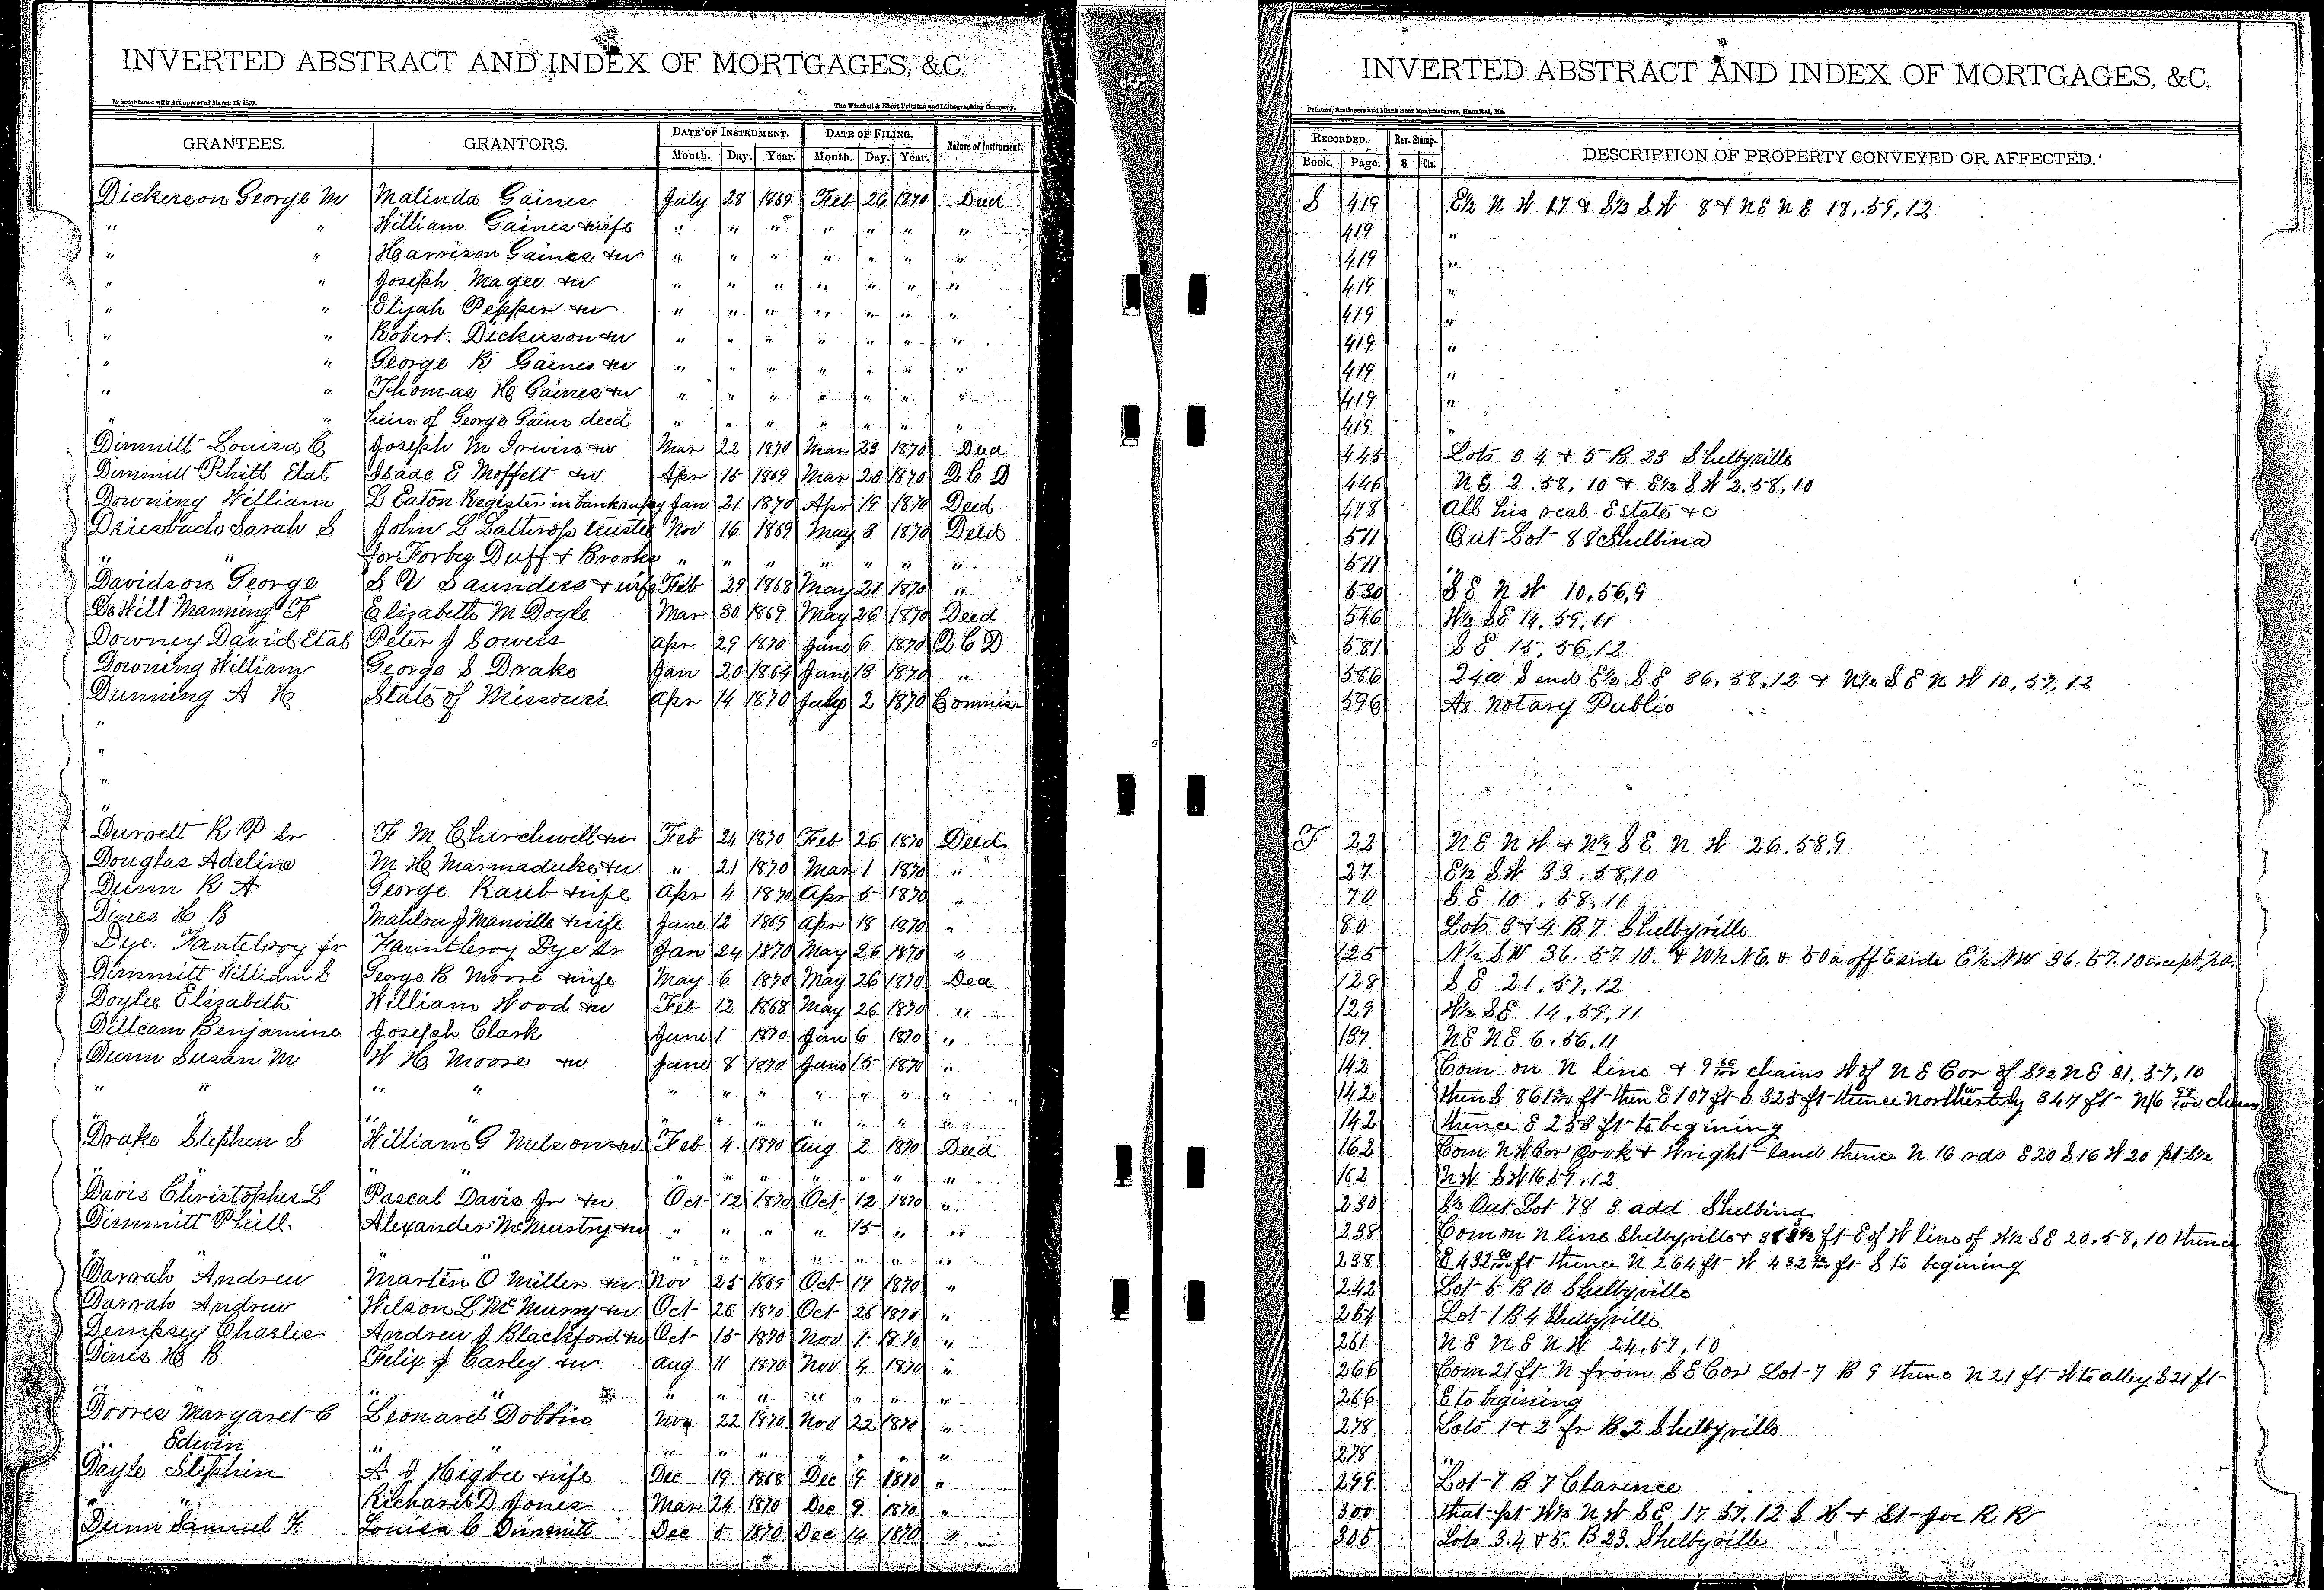 INVERTED ABSTRACT AND INDEX OF MORTGAGES, &C.
In accordance with Act approved March 25, 1893.
The Winchell & Ebert Printing and Lithographing Company,
GRANTEES. GRANTORS. DATE OF INSTRUMENT. DATE OF FILING. Nature of Instrument.
Month. Day. Year. Month. Day. Year.
Dickerson George M Malinda Gaines July 28 1869 Feb 26 1870 Deed
" " William Gaines & wife " " " " " " "
" " Harrison Gaines & w " " " " " " "
" " Joseph Magee & w " " " " " " "
" " Elijah Pepper & w " " " " " " "
" " Robert Dickerson & w " " " " " " "
" " George R Gaines & w " " " " " " "
" " Thomas H Gaines & w " " " " " " "
" " heirs of George Gains deed " " " " " " "
Dimmitt Louisa C Joseph M Irwin & w Mar 22 1870 Mar 23 1870 Deed
Dimmitt Philb Etal Isaac E Moffett & w Apr 15 1869 Mar 23 1870 Q C D
Downing William L Eaton Register in bankrupcy Jan 21 1870 Apr 19 1870 Deed
Driesbach Sarah S John L Lathrop trustee Nov 16 1869 May 3 1870 Deed
" " for Forbeg Duff & Brooke " " " " " " "
Davidson George S V Saunders & wife Feb 29 1868 May 21 1870 "
DeWitt Manning F Elizabeth M Doyle Mar 30 1869 May 26 1870 Deed
Downey David Etal Peter J Sowers Apr 29 1870 June 6 1870 Q C D
Downing William George S Drake Jan 20 1864 June 13 1870 "
Dunning A H State of Missouri Apr 14 1870 July 2 1870 Commisn
"
"
"
" Durrett R P Sr F M Churchwell & w Feb 24 1870 Feb 26 1870 Deed
Douglas Adeline M H Marmaduke & w " 21 1870 Mar 1 1870 "
Dunn R A George Raub & wife Apr 4 1870 Apr 5 1870 "
Dines H B Mahlon J Manville & wife June 12 1869 Apr 18 1870 "
Dye Fantelroy Jr Fauntleroy Dye Sr Jan 24 1870 May 26 1870 "
Dimmitt William L George B Moore & wife May 6 1870 May 26 1870 Deed
Doyle Elizabeth William Wood & w Feb 12 1868 May 26 1870 "
Dillcam Benjamine Joseph Clark June 1 1870 June 6 1870 "
Dunn Susan M W H Moore & w June 8 1870 June 15 1870 "
" " " " " " " " " " "
" " " " " " " " "
Drake Stephen S William G Nelson & w Feb 4 1870 Aug 2 1870 Deed
" " " " " " " "
Davis Christopher L Pascal Davis Jr & w Oct 12 1870 Oct 12 1870 "
Dimmitt Phill. Alexander McMurtry & w " " " " 15 " "
" " " " " " " "
Darrah Andrew Marten O Miller & w Nov 25 1869 Oct 17 1870 "
Darrah Andrew Wilson L McMurry & w Oct 26 1870 Oct 26 1870 "
Dempsey Charles Andrew J Blackford & w Oct 15 1870 Nov 1 1870 "
Dines H B Felix J Carley & w Aug 11 1870 Nov 4 1870 "
" " " " " " " " "
Doores Margaret C Leonard Dobbin Nov 22 1870 Nov 22 1870 "
" Edwin " " " " " " " "
Doyle Stephin A J Higbee & wife Dec 19 1868 Dec 9 1870 "
" " Richard D Jones Mar 24 1870 Dec 9 1870 "
Dunn Samuel F Louisa C Dimmitt Dec 5 1870 Dec 14 1870 "
INVERTED ABSTRACT AND INDEX OF MORTGAGES, &C.
Printers, Stationers and Blank Book Manufacturers, Hannibal, Mo.
RECORDED. Rev. Stamp. DESCRIPTION OF PROPERTY CONVEYED OR AFFECTED.
Book. Page. $ Cts.
S 419 E½ N W 17 & S½ S W 8 & NE NE 18.59.12
419 "
419 "
419 "
419 "
419 "
419 "
419 "
419 "
445 Lots 3 4 & 5 B 23 Shelbyville
446 NE 2.58.10 & E½ S W 2.58.10
478 All his real Estate &c
511 Out Lot 88 Shelbina
511 "
530 S E N W 10.56.9
546 W½ SE 14.59.11
581 S E 15.56.12
586 24a S end E½ S E 36.58.12 & N½ S E N W 10.57.12
596 As Notary Public
T 22 NE N W & N½ S E N W 26.58.9
27 E½ S W 33.58.10
70 S E 10.58.11
80 Lots 3 & 4 B 7 Shelbyville
125 N½ SW 36.57.10. & W½ NE. & 50a off E side E½ NW 36.57.10 except ½ a.
128 S E 21.57.12
129 W½ SE 14.59.11
137 NE NE 6.56.11
142 Com on N line & 9 chains W of NE Cor of S½ NE 31.57.10
142 then S 861 ft then E 107 ft S 325 ft thence Northwesterly 347 ft N 16 chains
142 thence E 253 ft to begining
162 Com N W Cor Cook & Wright land thence N 16 rds E 20 S 16 W 20 pt S½
162 N W S W 16.57.12
230 S½ Out Lot 78 3 add Shelbina
238 Com on N line Shelbyville & ft E of W line of W½ SE 20.58.10 thence
238 E 432 ft thence N 264 ft W 432 ft S to begining
242 Lot 5 B 10 Shelbyville
254 Lot 1 B 4 Shelbyville
261 N E N E N W 24.57.10
266 Com 21 ft N from S E Cor Lot 7 B 9 thenc N 21 ft W to alley S 21 ft
266 E to begining
278 Lots 1 & 2 fr B 2 Shelbyville
278 "
299 Lot 7 B 7 Clarence
300 that pt W½ N W SE 17.57.12 S H & St Joe R R
305 Lots 3.4 & 5. B 23. Shelbyville